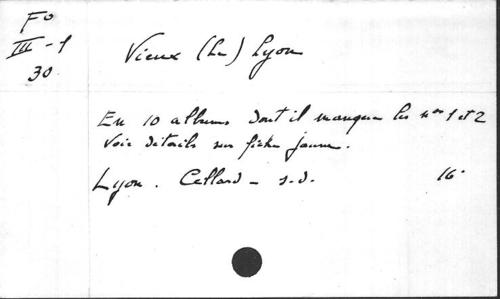 Fº
III - 1
30
Vieux (Le) Lyon
En 10 albums dont il manque les nos 1 et 2
Voir détails sur fiche jaune.
Lyon. Cellard - s.d. 16º